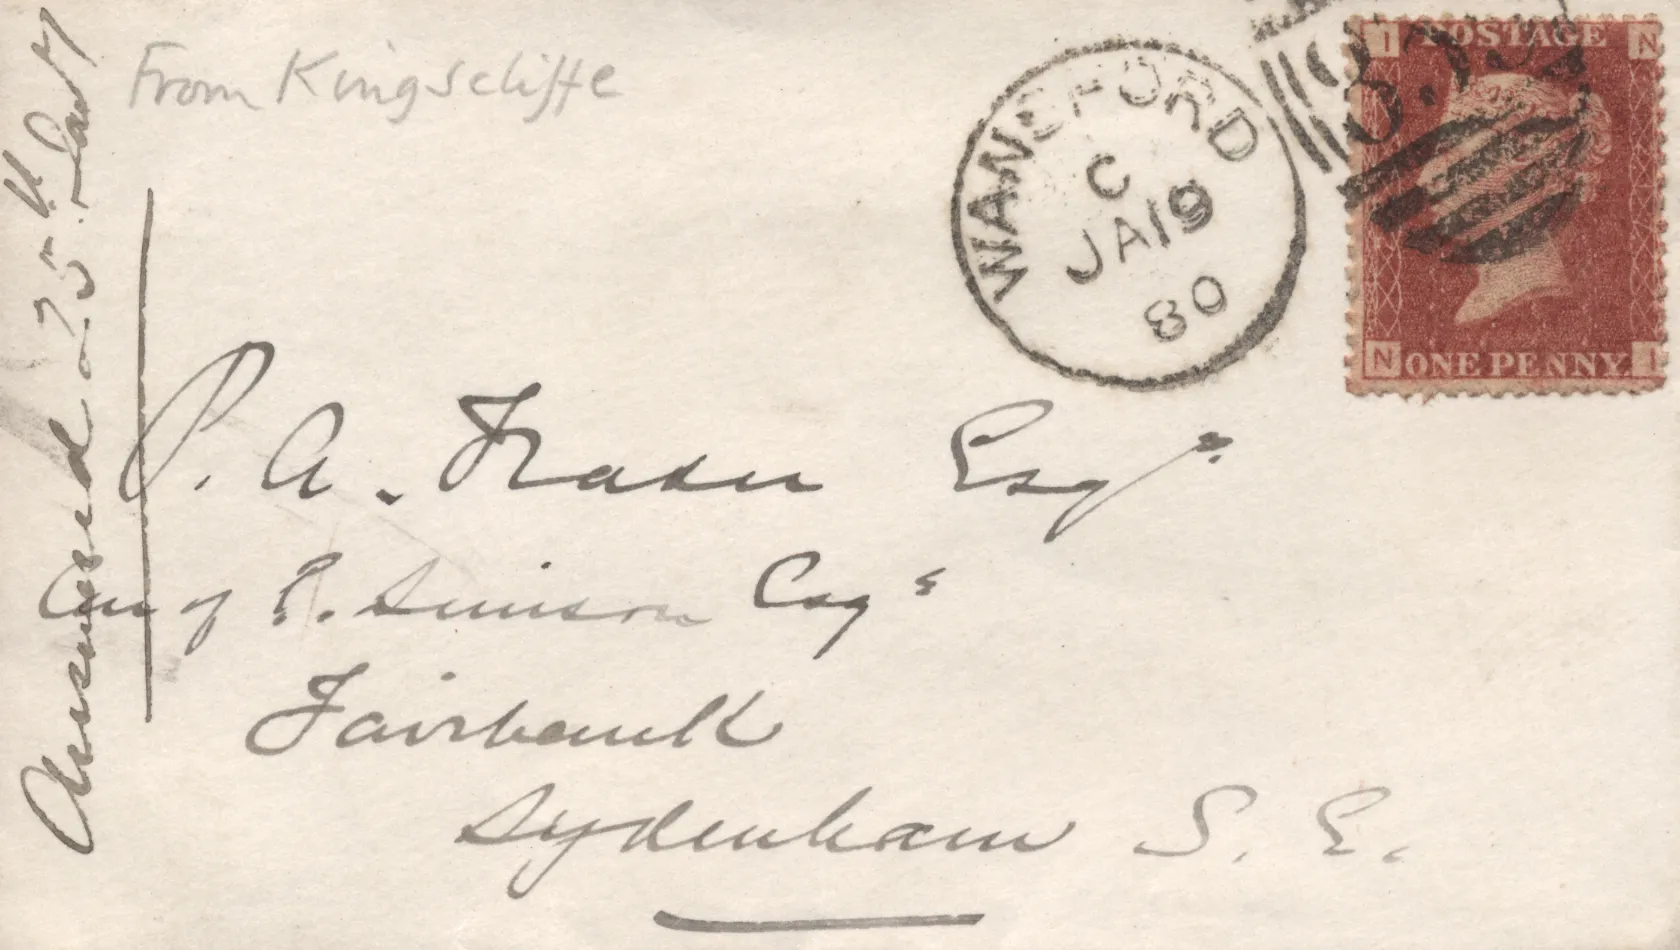 From Kingscliffe
Answered 25th Jany
WANSFORD
C
JA 19
80
I POSTAGE N
N ONE PENNY. I
P. A. Fraser Esqr
Care of P. Simson Esqr
Fairbank
Sydenham S. E.